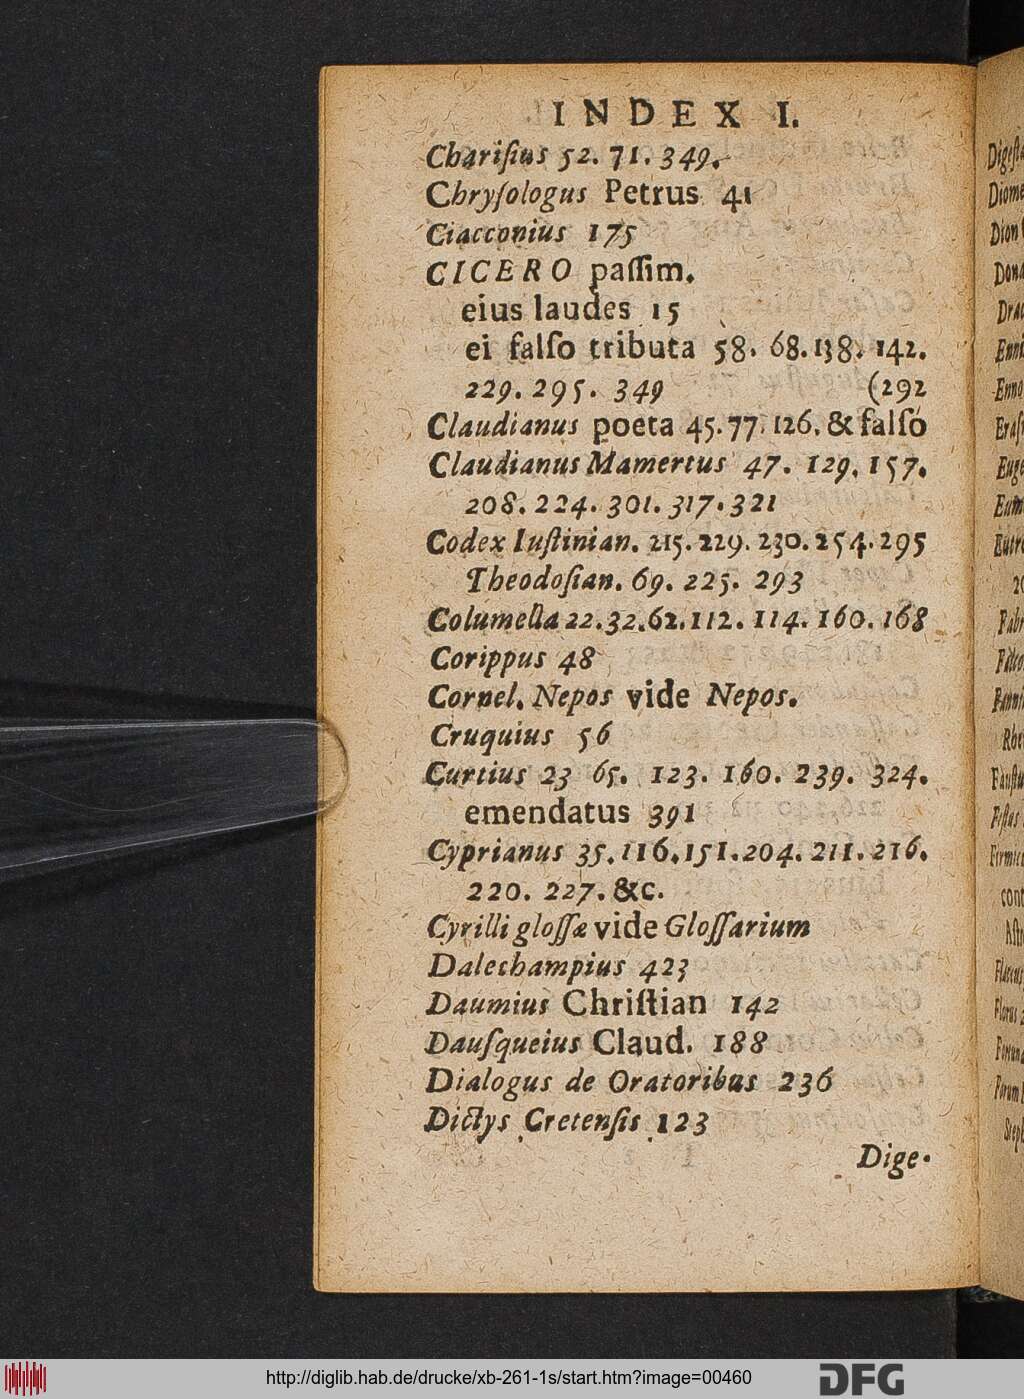 INDEX I.
Chariſius 52. 71. 349.
Chryſologus Petrus 41
Ciacconius 175
CICERO paſſim.
eius laudes 15
ei falſo tributa 58. 68. 138. 142.
229. 295. 349 (292
Claudianus poeta 45. 77. 126. & falſò
Claudianus Mamertus 47. 129. 157.
208. 224. 301. 317. 321
Codex Iuſtinian. 215. 229. 230. 254. 295
Theodoſian. 69. 225. 293
Columella 22. 32. 62. 112. 114. 160. 168
Corippus 48
Cornel. Nepos vide Nepos.
Cruquius 56
Curtius 23 65. 123. 160. 239. 324.
emendatus 391
Cyprianus 35. 116. 151. 204. 211. 216.
220. 227. &c.
Cyrilli gloſſæ vide Gloſſarium
Dalechampius 423
Daumius Chriſtian 142
Dauſqueius Claud. 188
Dialogus de Oratoribus 236
Dictys Cretenſis 123
Dige-
http://diglib.hab.de/drucke/xb-261-1s/start.htm?image=00460
DFG